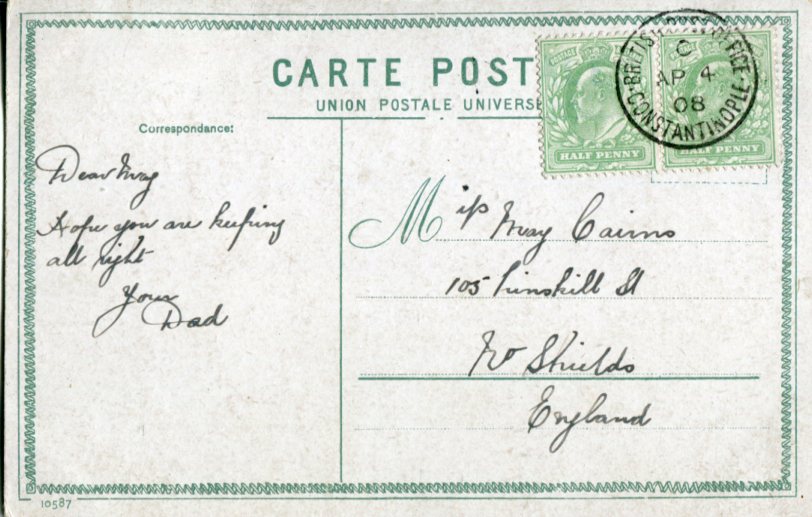 CARTE POST
UNION POSTALE UNIVERSE
POSTAGE
HALF PENNY
HALF PENNY
BRITISH POST OFFICE
C
AP 4
08
CONSTANTINOPLE
Correspondance:
Dear May
Hope you are keeping
all right
Your
Dad
Miss May Cairns
105 St
No Shields
England
10587